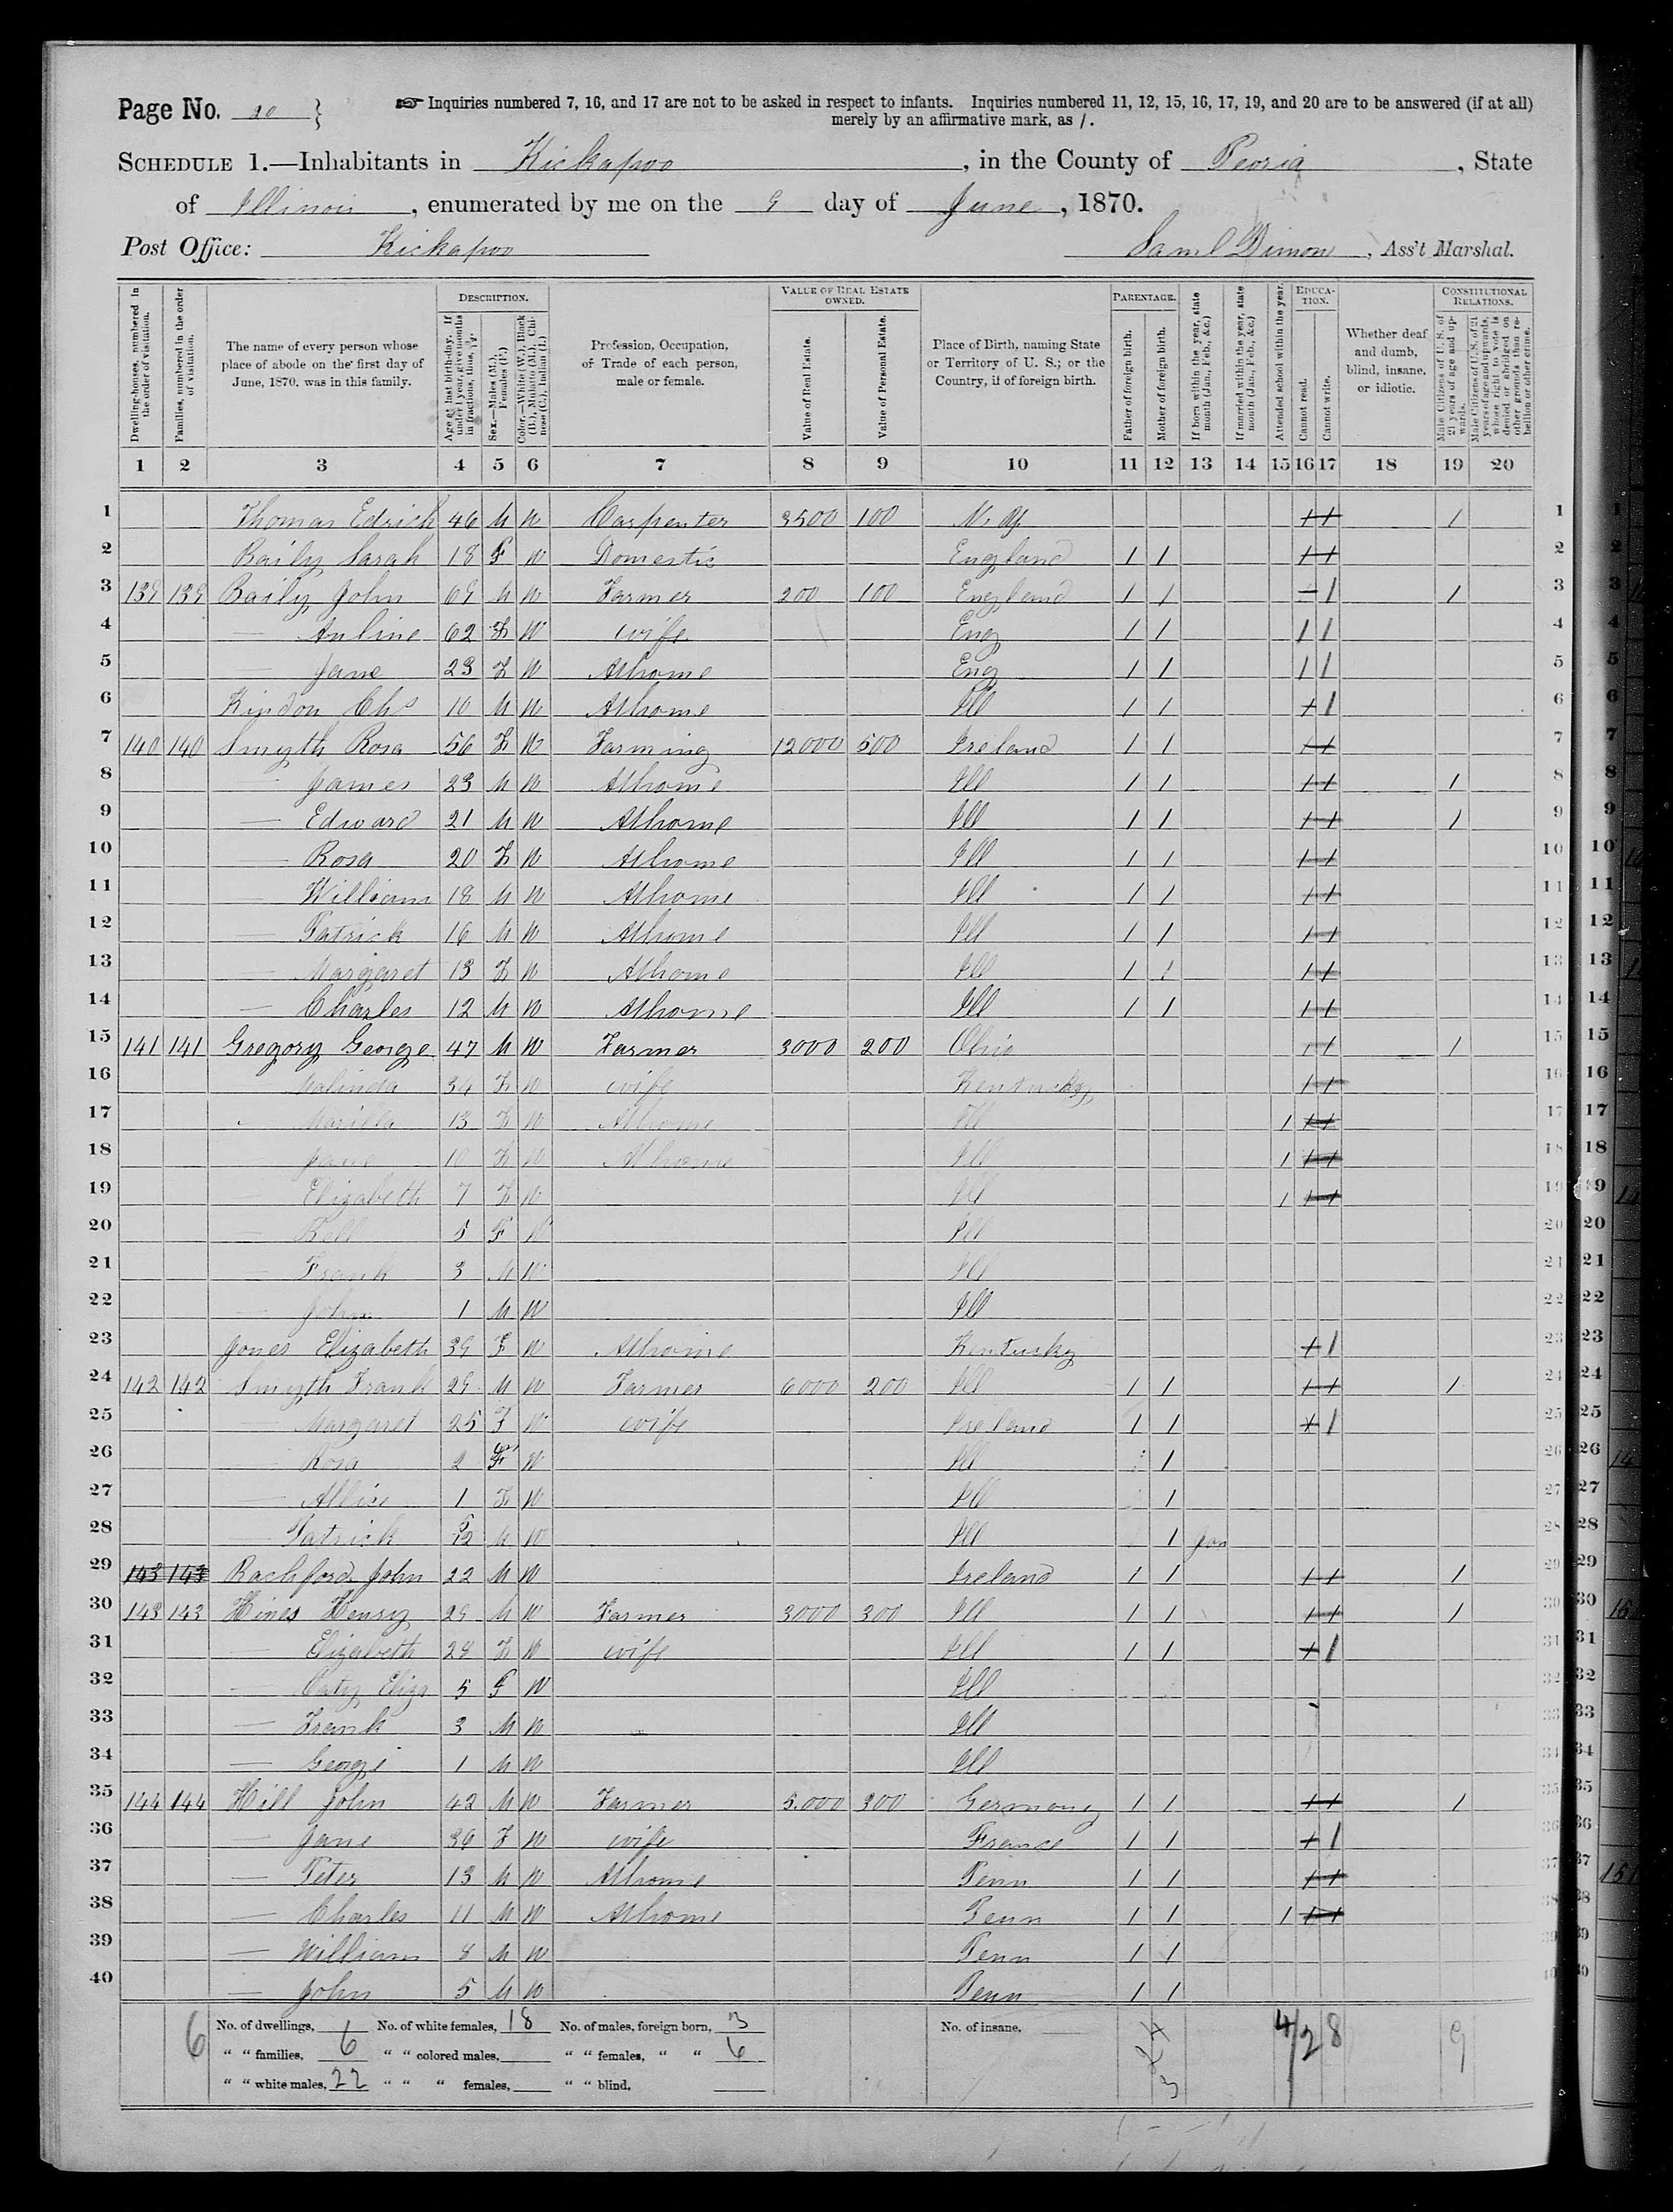 Page No. 20 }
☞ Inquiries numbered 7, 16, and 17 are not to be asked in respect to infants. Inquiries numbered 11, 12, 15, 16, 17, 19, and 20 are to be answered (if at all)
merely by an affirmative mark, as /.
SCHEDULE 1.—Inhabitants in Kickapoo, in the County of Peoria, State
of Illinois, enumerated by me on the 9 day of June, 1870.
Post Office: Kickapoo Saml Dimon, Ass't Marshal.
Dwelling-houses, numbered in the order of visitation.
Families, numbered in the order of visitation.
The name of every person whose place of abode on the first day of June, 1870, was in this family.
DESCRIPTION.
Age at last birth-day. If under 1 year, give months in fractions, thus, 3/12.
Sex.—Males (M.), Females (F.)
Color.—White (W.), Black (B.), Mulatto (M.), Chinese (C.), Indian (I.)
Profession, Occupation, or Trade of each person, male or female.
VALUE OF REAL ESTATE OWNED.
Value of Real Estate.
Value of Personal Estate.
Place of Birth, naming State or Territory of U. S.; or the Country, if of foreign birth.
PARENTAGE.
Father of foreign birth.
Mother of foreign birth.
If born within the year, state month (Jan., Feb., &c.)
If married within the year, state month (Jan., Feb., &c.)
Attended school within the year.
EDUCATION.
Cannot read.
Cannot write.
Whether deaf and dumb, blind, insane, or idiotic.
CONSTITUTIONAL RELATIONS.
Male Citizens of U. S. of 21 years of age and upwards.
Male Citizens of U. S. of 21 years of age and upwards, whose right to vote is denied or abridged on other grounds than rebellion or other crime.
1 2 3 4 5 6 7 8 9 10 11 12 13 14 15 16 17 18 19 20
1 Thomas Edrich 46 M W Carpenter 3500 100 N. Y. 1 1 1 1
2 Baily Sarah 18 F W Domestic England 1 1 1 1 2
3 139 139 Baily John 69 M W Farmer 200 100 England 1 1 – 1 1 3
4 — Anline 62 F W wife Eng 1 1 1 1 4
5 — Jane 23 F W At home Eng 1 1 1 1 5
6 Kindon Chs 10 M W At home Ill 1 1 1 1 6
7 140 140 Smyth Rosa 56 F W Farming 12000 500 Ireland 1 1 1 1 7
8 — James 23 M W At home Ill 1 1 1 1 1 8
9 — Edward 21 M W At home Ill 1 1 1 1 1 9
10 — Rosa 20 F W At home Ill 1 1 1 1 10
11 — William 18 M W At home Ill 1 1 1 1 11
12 — Patrick 16 M W At home Ill 1 1 1 1 12
13 — Margaret 13 F W At home Ill 1 1 1 1 13
14 — Charles 12 M W At home Ill 1 1 1 1 14
15 141 141 Gregory George 47 M W Farmer 3000 200 Ohio 1 1 1 15
16 Malinda 34 F W wife Kentucky 1 1 16
17 Marilla 13 F W At home Ill 1 1 1 17
18 — Jane 10 F W At home Ill 1 1 1 18
19 — Elizabeth 7 F W Ill 1 1 1 19
20 — Bell 5 F W Ill 20
21 — Frank 3 M W Ill 21
22 — John 1 M W Ill 22
23 Jones Elizabeth 39 F W At home Kentucky 1 1 23
24 142 142 Smyth Frank 29 M W Farmer 6000 200 Ill 1 1 1 1 1 24
25 — Margaret 25 F W wife Ireland 1 1 1 1 25
26 — Rosa 2 F W Ill 1 26
27 — Allice 1 F W Ill 1 27
28 — Patrick 5/12 M W Ill 1 Jan 28
29 143 143 Rachford John 22 M W Ireland 1 1 1 1 1 29
30 143 143 Hines Henry 29 M W Farmer 3000 300 Ill 1 1 1 1 1 30
31 — Elizabeth 28 F W wife Ill 1 1 1 1 31
32 — Caty Eliza 5 F W Ill 32
33 — Frank 3 M W Ill 33
34 — George 1 M W Ill 34
35 144 144 Hill John 42 M W Farmer 5.000 300 Germany 1 1 1 1 1 35
36 — Jane 36 F W wife France 1 1 1 1 36
37 — Peter 13 M W At home Penn 1 1 1 1 37
38 — Charles 11 M W At home Penn 1 1 1 1 1 38
39 — William 8 M W Penn 1 1 39
40 — John 5 M W Penn 1 1 40
6 No. of dwellings, 6 No. of white females, 18 No. of males, foreign born, 3 No. of insane,
" " families, 6 " " colored males, " " females, " " 6
" " white males, 22 " " " females, " " blind,
4/28 9